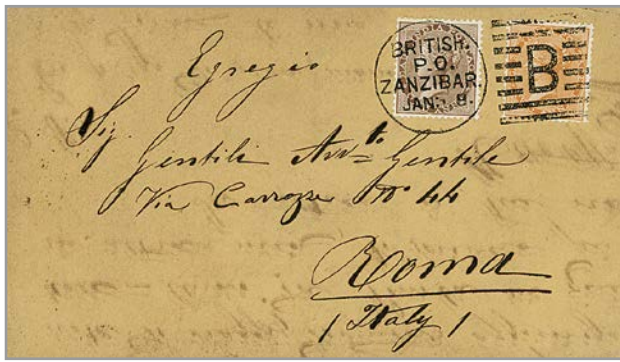 BRITISH.
P.O.
ZANZIBAR.
JAN. 8.
B
Egregio
Sig.
Gentili Avv.to Gentile
Via Carrozze No 44
Roma
/ Italy /